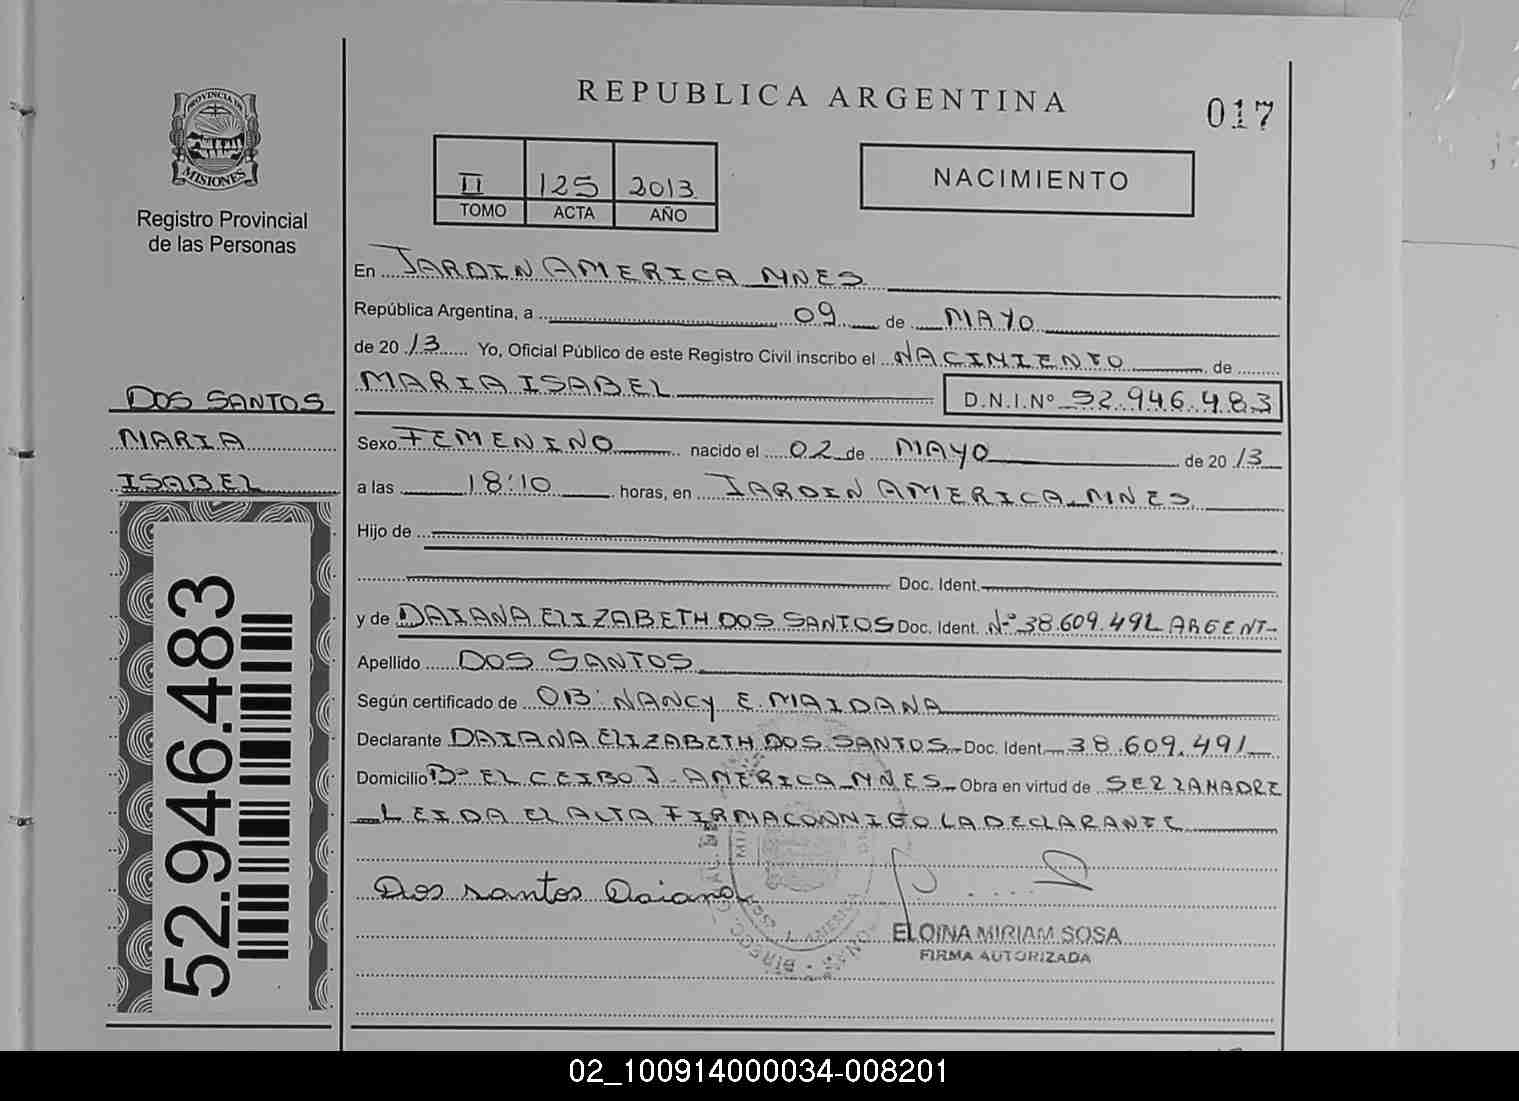 PROVINCIA DE
MISIONES
Registro Provincial
de las Personas
DOS SANTOS
MARIA
ISABEL
52.946.483
REPUBLICA ARGENTINA
017
II 125 2013
TOMO ACTA AÑO
NACIMIENTO
En JARDIN AMERICA MNES
República Argentina, a 09 de MAYO
de 2013 Yo, Oficial Público de este Registro Civil inscribo el NACIMIENTO de
MARIA ISABEL D.N.I.Nº 52.946.483
Sexo FEMENINO nacido el 02 de MAYO de 2013
a las 18:10 horas, en JARDIN AMERICA MNES.
Hijo de
Doc. Ident.
y de DAIANA ELIZABETH DOS SANTOS Doc. Ident. Nº 38.609.491 ARGENT-
Apellido DOS SANTOS
Según certificado de OB: NANCY E. MAIDANA
Declarante DAIANA ELIZABETH DOS SANTOS Doc. Ident. 38.609.491
Domicilio Bº EL CEIBO J. AMERICA MNES Obra en virtud de SER LA MADRE
LEIDA EL ALTA FIRMA CONMIGO LA DECLARANTE
Dos santos Daiana
ELOINA MIRIAM SOSA
FIRMA AUTORIZADA
02_100914000034-008201